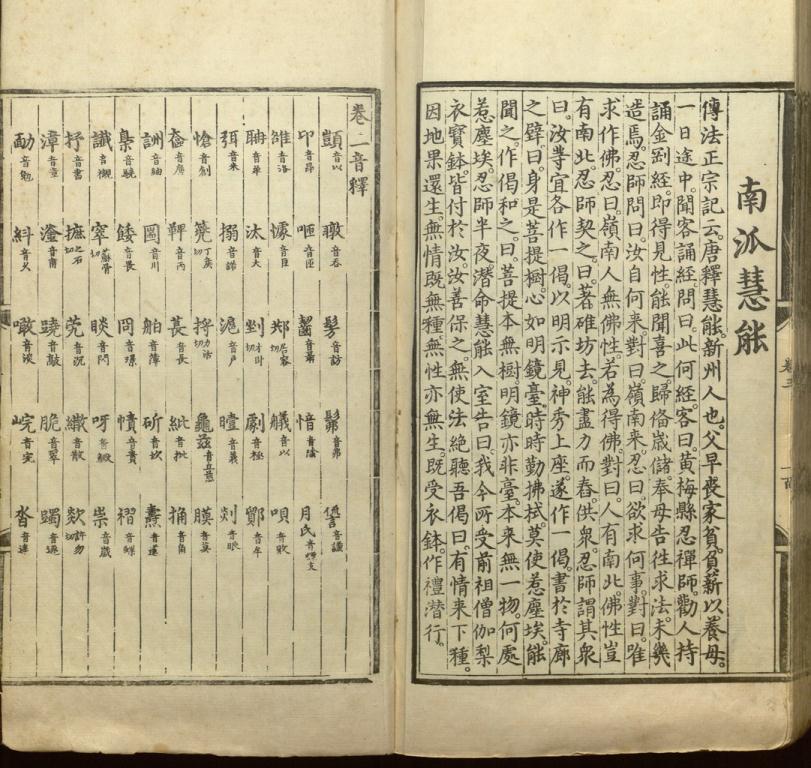 南泒慧能
傳法正宗記云。唐釋慧能。新州人也。父早喪家貧。負薪以養母。
一日途中。聞客誦經。問曰。此何經。客曰。黃梅縣忍禪師。勸人持
誦金剛經。即得見性。能聞喜之。歸俻歲儲。奉母告徃求法。未幾
造焉。忍師問曰。汝自何来。對曰。嶺南来。忍曰。欲求何事。對曰。唯
求作佛。忍曰。嶺南人無佛性。若為得佛。對曰。人有南北。佛性豈
有南北。忍師契之。曰。著碓坊去。能盡力而舂供衆。忍師謂其衆
曰。汝等宜各作一偈。以明示見。神秀上座。遂作一偈。書於寺廊
之壁。曰。身是菩提樹。心如明鏡臺。時時勤拂拭。莫使惹塵埃。能
聞之。作偈和之。曰。菩提本無樹。明鏡亦非臺。本来無一物。何處
惹塵埃。忍師半夜。潛命慧能入室。告曰。我今所受前祖僧伽梨
衣寶鉢。皆付於汝。汝善保之。無使法絶。聽吾偈曰。有情来下種。
因地果還生。無情既無種。無性亦無生。既受衣鉢。作禮潛行。
卷二音釋
顗音以 暾音吞 髣音訪 髴音弗
卬音昂 咂音匝 愔音陰 月氏音支
雒音洛 懅音巨 郟 艤音以 唄音敗
聃音華 汰音大 劇音極 鄮音牟
弭音米 搦音諾 滬音戶 曀音義 剡音眼
愴音創 龜茲音丘慈 膜音莫
裔音 鞞音丙 萇音長 紕音批 捔音角
訷音紬 圌音川 舶音薄 斫音 燾音道
梟音驍 餧音畏 罔 幘音責 褶音
讖音襯 窣蘇骨切 睒音閃 呀音 祟音歲
抒音書 摭之石切 莌音沉 繖音散 欻許勿切
漳音章 瀘音甫 蹺音敲 脆音翠 躅音逐
勔音勉 㪷音火 噉音淡 岏音完 沓音達